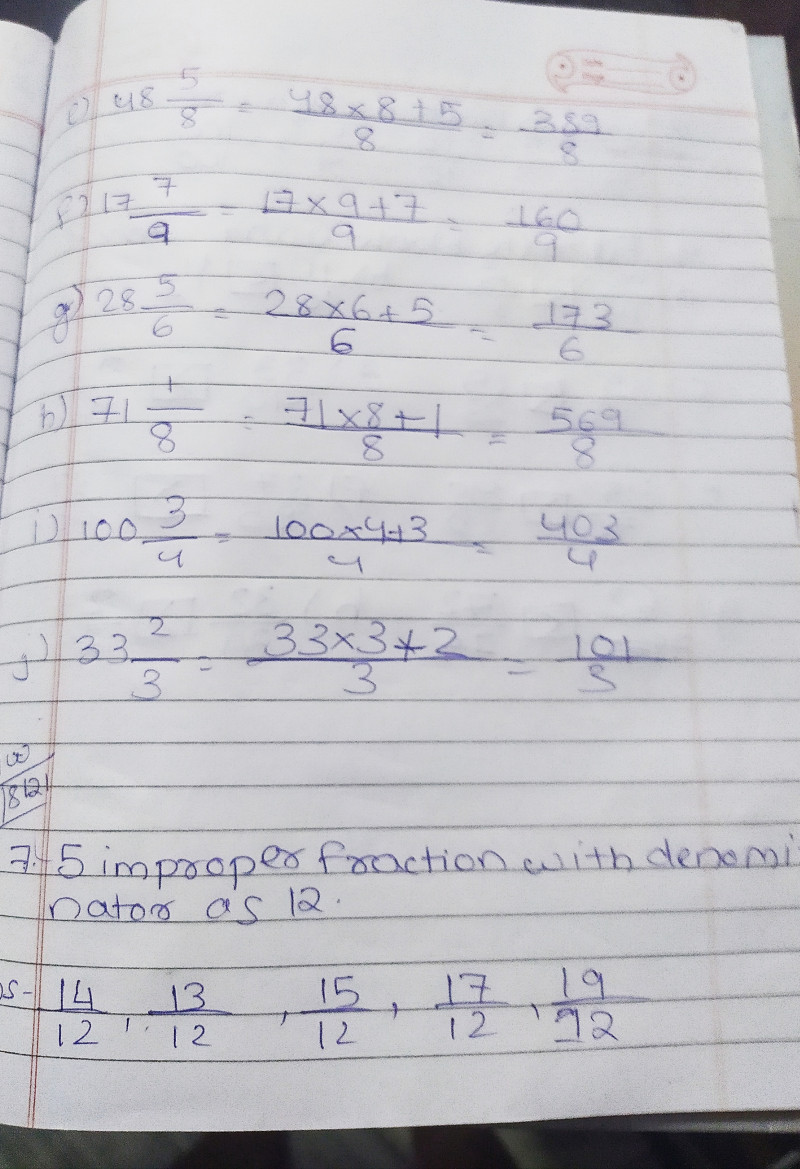 e) 48 5/8 = 48×8+5/8 = 389/8
f) 17 7/9 = 17×9+7/9 = 160/9
g) 28 5/6 = 28×6+5/6 = 173/6
h) 71 1/8 = 71×8+1/8 = 569/8
i) 100 3/4 = 100×4+3/4 = 403/4
j) 33 2/3 = 33×3+2/3 = 101/3
7. 5 improper fraction with denomi
nator as 12.
s- 14/12, 13/12, 15/12, 17/12, 19/12